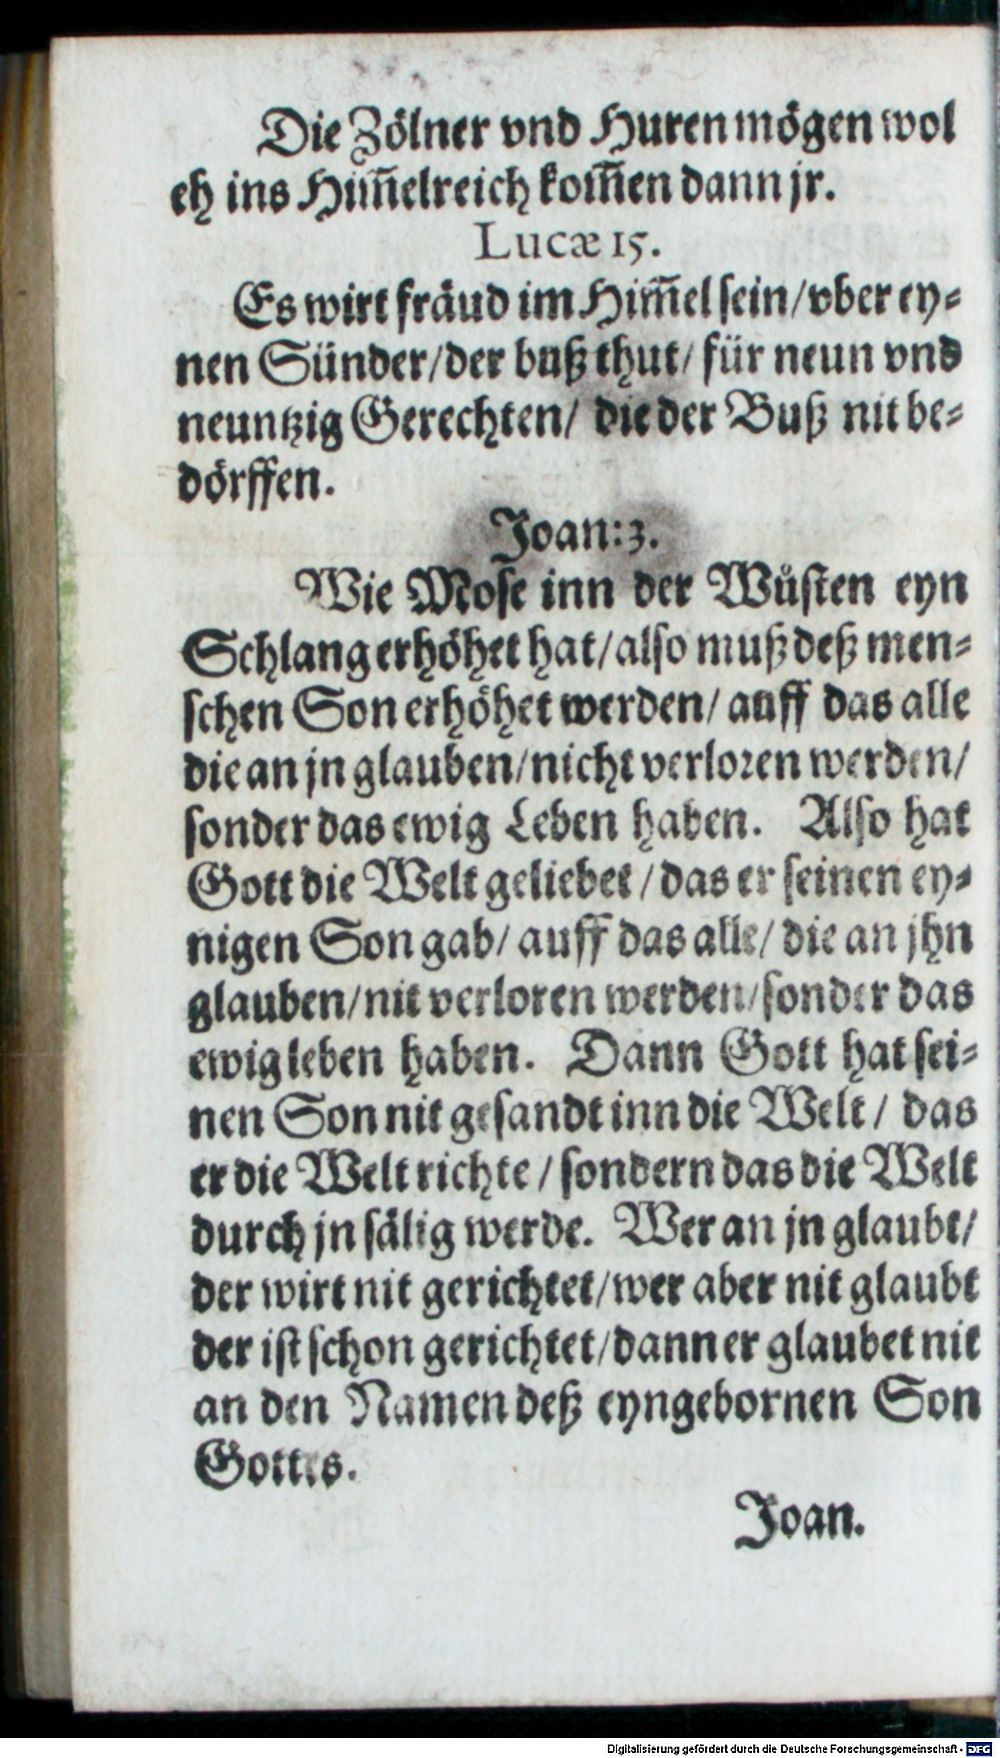 Die Zölner vnd Huren mögen wol
eh ins Him̄elreich kom̄en dann jr.
Lucæ 15.
Es wirt fräud im Him̄el sein/ vber ey⸗
nen Sünder/ der buß thut/ für neun vnd
neuntzig Gerechten/ die der Buß nit be⸗
dörffen.
Joan: 3.
Wie Mose inn der Wůsten eyn
Schlang erhöhet hat/ also muß deß men⸗
schen Son erhöhet werden/ auff das alle
die an jn glauben/ nicht verloren werden/
sonder das ewig Leben haben. Also hat
Gott die Welt geliebet/ das er seinen ey⸗
nigen Son gab/ auff das alle/ die an jhn
glauben/ nit verloren werden/ sonder das
ewig leben haben. Dann Gott hat sei⸗
nen Son nit gesandt inn die Welt/ das
er die Welt richte/ sondern das die Welt
durch jn sälig werde. Wer an jn glaubt/
der wirt nit gerichtet/ wer aber nit glaubt
der ist schon gerichtet/ dann er glaubet nit
an den Namen deß eyngebornen Son
Gottes.
Joan.
Digitalisierung gefördert durch die Deutsche Forschungsgemeinschaft - DFG